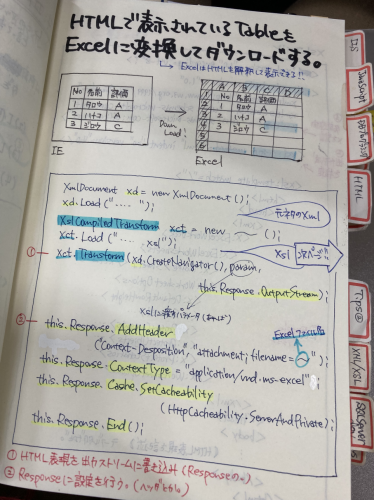 HTMLで表示されているTableを
Excelに変換してダウンロードする。
ExcelはHTMLを解析して表示できる!!
No 名前 評価
1 タロウ A
2 ハナコ A
3 ジロウ C
IE
Down Load!
A B C D
1 No 名前 評価
2 1 タロウ A
3 2 ハナコ A
4 3 ジロウ C
Excel
XmlDocument xd = new XmlDocument();
xd.Load("..... ");
元ネタのXml
XslCompiledTransform xct = new 〜 ();
xct.Load("..... xsl");
Xsl 次ページへ
① xct.Transform(xd.CreateNavigator(), param,
this.Response.OutputStream);
Xslに渡すパラメータ(あれば)
② this.Response.AddHeader
("Context-Desposition", "attachment; filename=〜");
Excelファイル名
this.Response.ContextType = "application/vnd.ms-excel"
this.Response.Cashe.SetCacheability
(HttpCacheability.ServerAndPrivate);
this.Response.End();
① HTML表現を出力ストリームに書き込み (Responseの。)
② Responseに設定を行う。(ヘッダとか。)
IIS
JavaScript
HTML
Tips@
XML/XSL
SQLServer